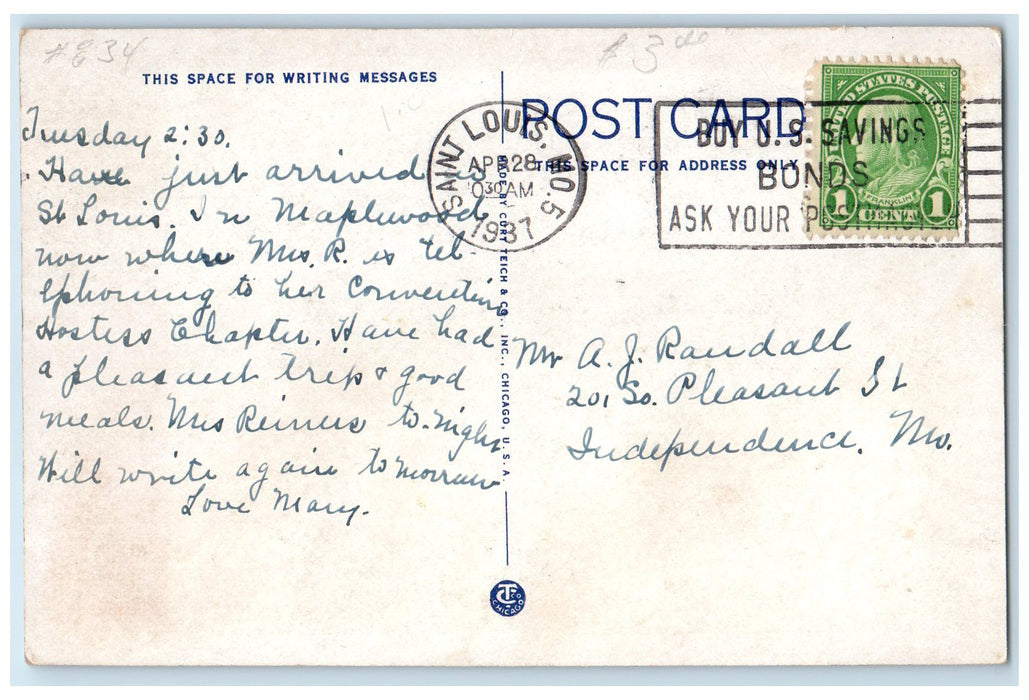 #834
# 3 00
THIS SPACE FOR WRITING MESSAGES
Tuesday 2:30.
Have just arrived
St Louis. In Maplewood
now where Mrs. R. is tel
ephoning to her Convention
Hostess Chapter. Have had
a pleasant trip & good
meals. Mrs to-night
Will write again tomorrow
Love Mary.
POST CARD
THIS SPACE FOR ADDRESS ONLY
SAINT LOUIS, MO. 5
APR 28
30 AM
1937
BUY U.S. SAVINGS
BONDS
ASK YOUR POSTMASTER
UNITED STATES POSTAGE
FRANKLIN
1 CENT 1
Mr A. J. Randall
201 So. Pleasant St
Independence, Mo.
BY CURT TEICH & CO., INC., CHICAGO, U.S.A.
CHICAGO